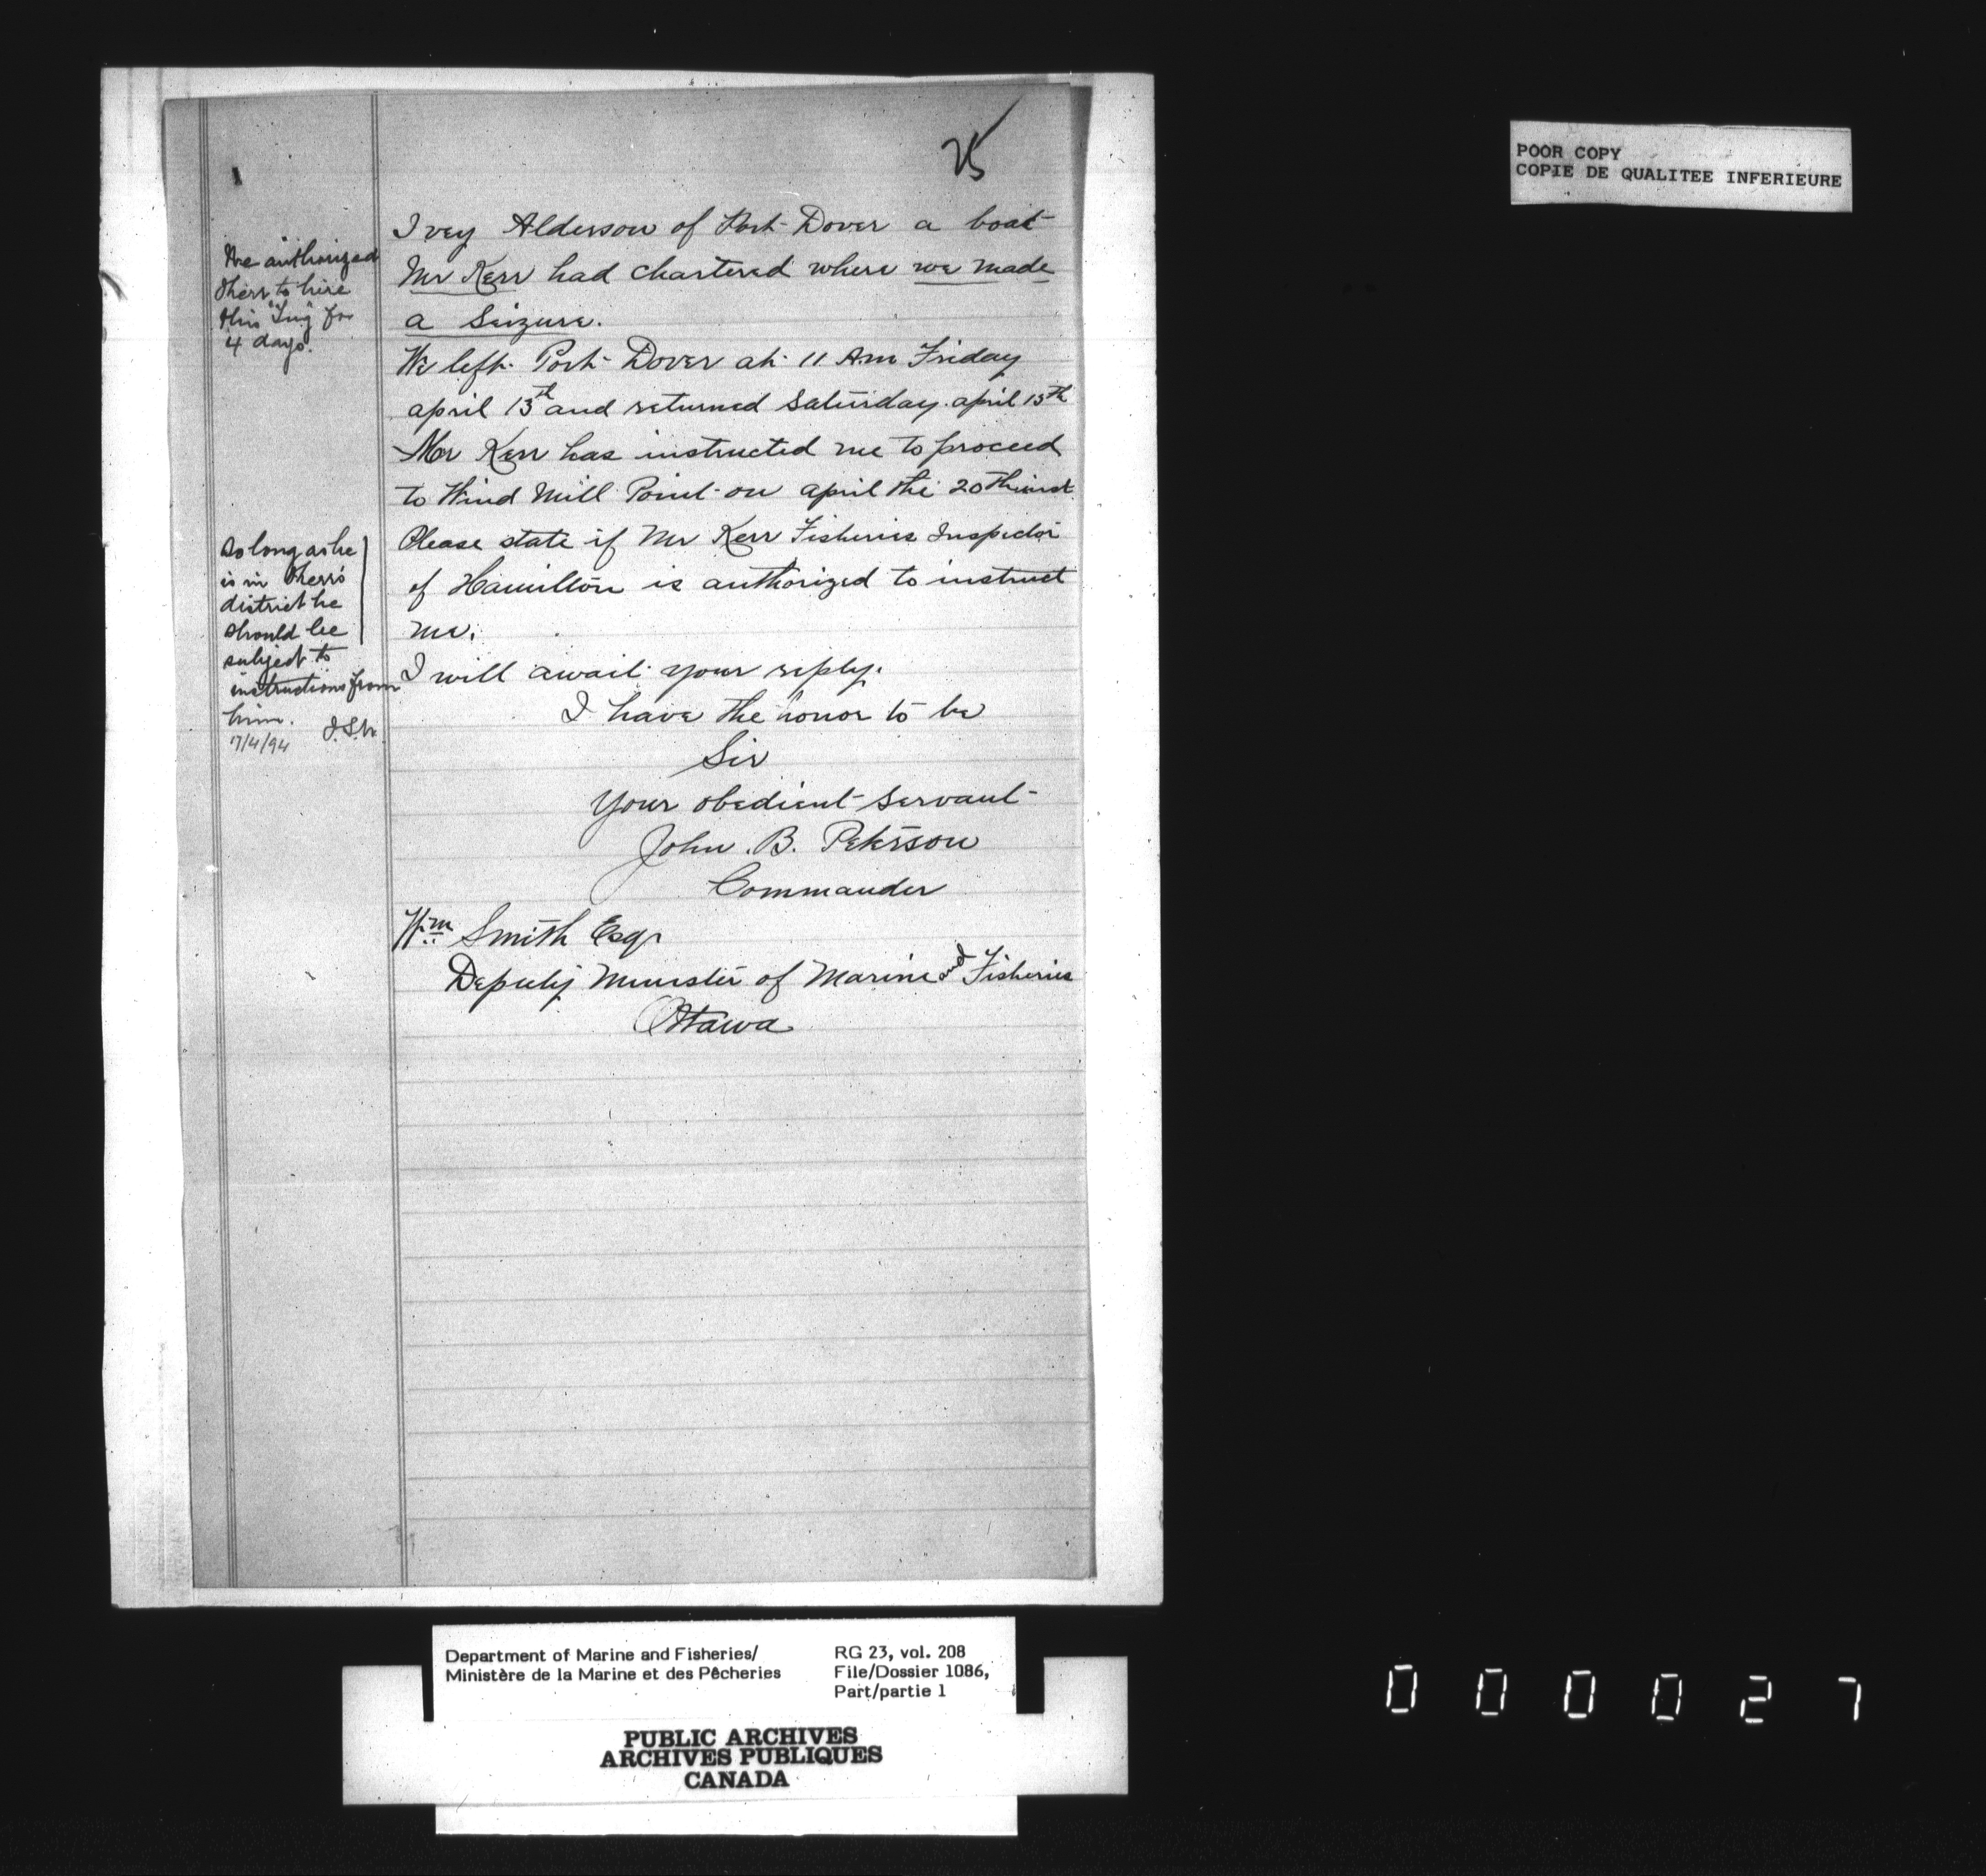 25
Ivey Alderson of Port Dover a boat
Mr Kerr had chartered where we made
a Seizure.
We left Port Dover at 11 A.m Friday
april 13th and returned Saturday april 15th
Mr Kerr has instructed me to proceed
to Wind Mill Point on april the 20th inst
Please state if Mr Kerr Fisheries Inspector
of Hamilton is authorized to instruct
me.
I will await your reply.
I have the honor to be
Sir
Your obedient Servant
John . B. Peterson
Commander
Wm Smith Esqr
Deputy Minister of Marine and Fisheries
Ottawa
We authorized
Kerr to hire
this "Tug" for
4 days.
So long as he
is in Kerr's
district he
should be
subject to
instructions from
him.
17/4/94
POOR COPY
COPIE DE QUALITEE INFERIEURE
Department of Marine and Fisheries/
Ministère de la Marine et des Pêcheries
RG 23, vol. 208
File/Dossier 1086,
Part/partie 1
PUBLIC ARCHIVES
ARCHIVES PUBLIQUES
CANADA
000027